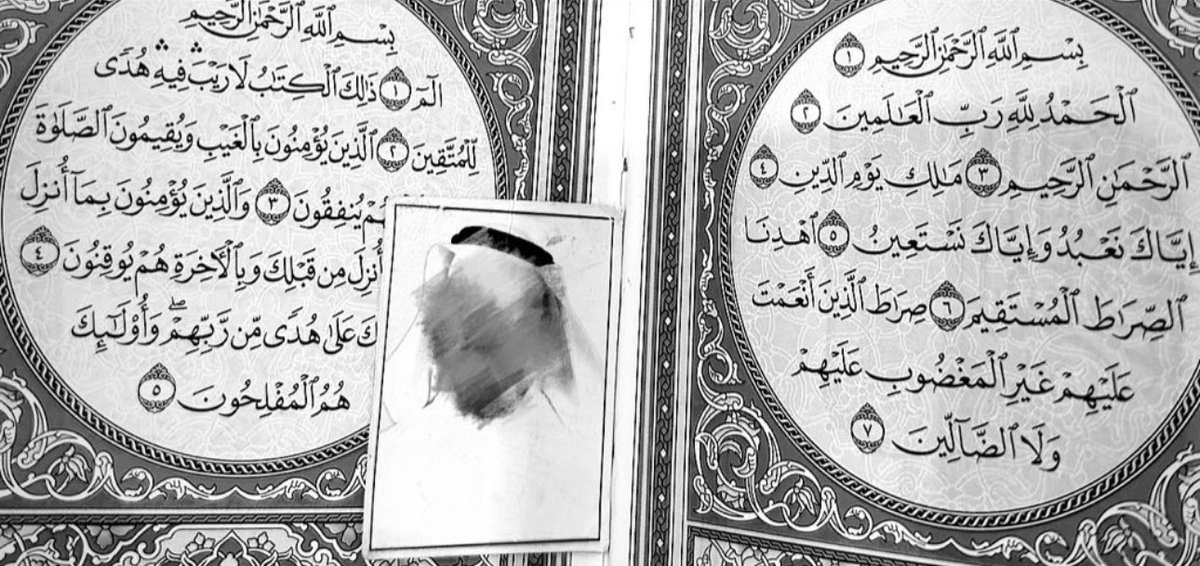 بِسْمِ ٱللَّهِ ٱلرَّحْمَٰنِ ٱلرَّحِيمِ ١
ٱلْحَمْدُ لِلَّهِ رَبِّ ٱلْعَٰلَمِينَ ٢
ٱلرَّحْمَٰنِ ٱلرَّحِيمِ ٣ مَٰلِكِ يَوْمِ ٱلدِّينِ ٤
إِيَّاكَ نَعْبُدُ وَإِيَّاكَ نَسْتَعِينُ ٥ ٱهْدِنَا
ٱلصِّرَٰطَ ٱلْمُسْتَقِيمَ ٦ صِرَٰطَ ٱلَّذِينَ أَنْعَمْتَ
عَلَيْهِمْ غَيْرِ ٱلْمَغْضُوبِ عَلَيْهِمْ
وَلَا ٱلضَّآلِّينَ ٧
بِسْمِ ٱللَّهِ ٱلرَّحْمَٰنِ ٱلرَّحِيمِ
الٓمٓ ١ ذَٰلِكَ ٱلْكِتَٰبُ لَا رَيْبَۛ فِيهِۛ هُدًى
لِّلْمُتَّقِينَ ٢ ٱلَّذِينَ يُؤْمِنُونَ بِٱلْغَيْبِ وَيُقِيمُونَ ٱلصَّلَوٰةَ
يُنفِقُونَ ٣ وَٱلَّذِينَ يُؤْمِنُونَ بِمَآ أُنزِلَ
أُنزِلَ مِن قَبْلِكَ وَبِٱلْءَاخِرَةِ هُمْ يُوقِنُونَ ٤
عَلَىٰ هُدًى مِّن رَّبِّهِمْۖ وَأُو۟لَٰٓئِكَ
هُمُ ٱلْمُفْلِحُونَ ٥